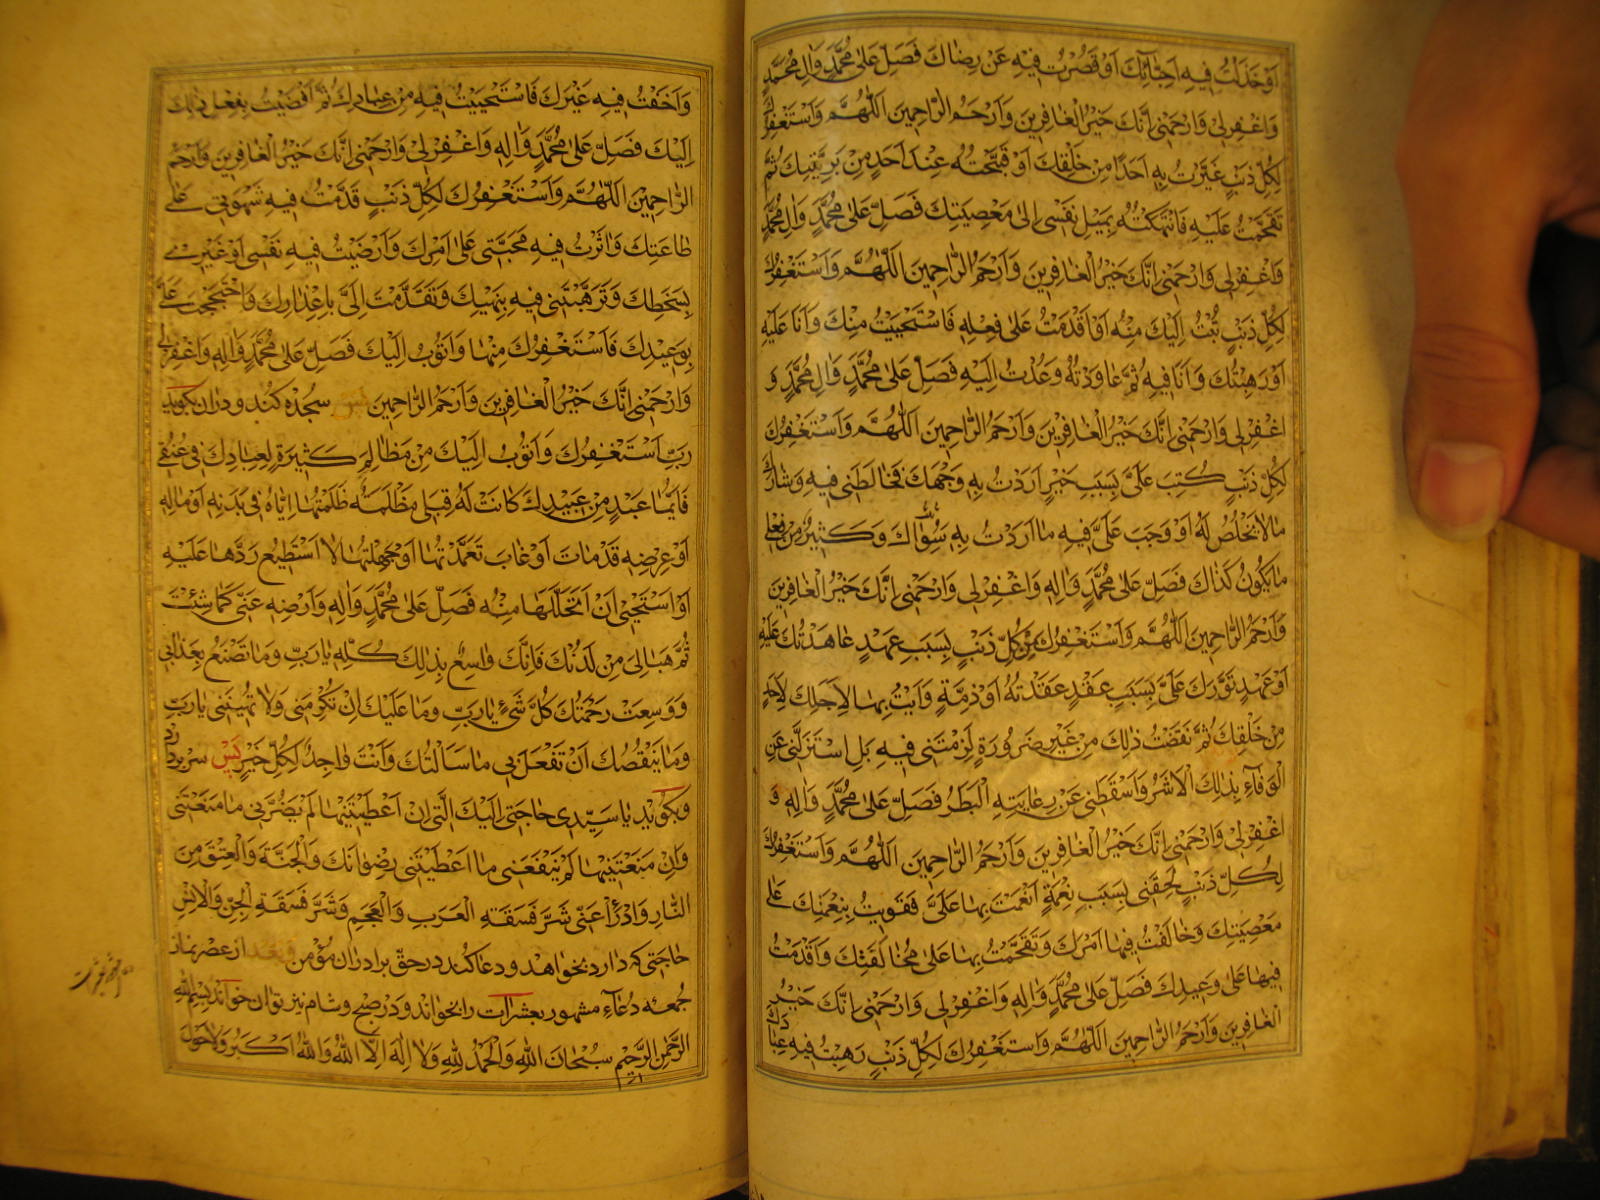 اَوْ خَذَلْتُ فِيهِ اَحِبَّائَكَ اَوْ قَصُرْتُ فِيهِ عَنْ رِضَاكَ فَصَلِّ عَلىٰ مُحَمَّدٍ وَاٰلِ مُحَمَّدٍ
وَاغْفِرْلِى وَارْحَمْنِى اِنَّكَ خَيْرُ الْغَافِرِينَ وَاَرْحَمُ الرَّاحِمِينَ اَللّٰهُمَّ وَاَسْتَغْفِرُكَ
لِكُلِّ ذَنْبٍ عَيَّرْتُ بِهِ اَحَدًا مِنْ خَلْقِكَ اَوْ قَبَّحْتُهُ عِنْدَ اَحَدٍ مِنْ بَرِيَّتِكَ ثُمَّ
تَقَحَّمْتُ عَلَيْهِ فَانْتَهَكْتُهُ بِمَيْلِ نَفْسِى اِلىٰ مَعْصِيَتِكَ فَصَلِّ عَلىٰ مُحَمَّدٍ وَاٰلِ مُحَمَّدٍ
فَاغْفِرْلِى وَارْحَمْنِى اِنَّكَ خَيْرُ الْغَافِرِينَ وَاَرْحَمُ الرَّاحِمِينَ اَللّٰهُمَّ وَاَسْتَغْفِرُكَ
لِكُلِّ ذَنْبٍ تُبْتُ اِلَيْكَ مِنْهُ اَوْ اَقْدَمْتُ عَلىٰ فِعْلِهِ فَاسْتَحْيَيْتُ مِنْكَ وَاَنَا عَلَيْهِ
اَوْ رَهِبْتُكَ وَاَنَا فِيهِ ثُمَّ عَاوَدْتُهُ وَعُدْتُ اِلَيْهِ فَصَلِّ عَلىٰ مُحَمَّدٍ وَاٰلِ مُحَمَّدٍ وَ
اغْفِرْلِى وَارْحَمْنِى اِنَّكَ خَيْرُ الْغَافِرِينَ وَاَرْحَمُ الرَّاحِمِينَ اَللّٰهُمَّ وَاَسْتَغْفِرُكَ
لِكُلِّ ذَنْبٍ كُتِبَ عَلَىَّ بِسَبَبِ خَيْرٍ اَرَدْتُ بِهِ وَجْهَكَ فَخَالَطَنِى فِيهِ وَشَارَكَ
مَا لَا يَخْلُصُ لَهُ اَوْ وَجَبَ عَلَىَّ فِيهِ مَا اَرَدْتُ بِهِ سِوَاكَ وَكَثِيرٌ مِنْ فِعْلِى
مَا يَكُونُ كَذَاكَ فَصَلِّ عَلىٰ مُحَمَّدٍ وَاٰلِهِ وَاغْفِرْلِى وَارْحَمْنِى اِنَّكَ خَيْرُ الْغَافِرِينَ
وَاَرْحَمُ الرَّاحِمِينَ اَللّٰهُمَّ وَاَسْتَغْفِرُكَ مِنْ كُلِّ ذَنْبٍ بِسَبَبِ عَهْدٍ عَاهَدْتُكَ عَلَيْهِ
اَوْ عَهْدٍ تَوَّرَكَ عَلَىَّ بِسَبَبِ عَقْدٍ عَقَدْتُهُ اَوْ ذِمَّةٍ وَاَيْتُ بِهَا لِاَجْلِكَ لِاَحَدٍ
مِنْ خَلْقِكَ ثُمَّ نَقَضْتُ ذٰلِكَ مِنْ غَيْرِ ضَرُورَةٍ لَزِمَتْنِى فِيهِ بَلِ اسْتَزَلَّنِى عَنِ
الْوَفَاءِ بِذٰلِكَ الْاَشَرُ وَاَسْقَطَنِى عَنْ رِعَايَتِهِ الْبَطَرُ فَصَلِّ عَلىٰ مُحَمَّدٍ وَاٰلِهِ وَ
اغْفِرْلِى وَارْحَمْنِى اِنَّكَ خَيْرُ الْغَافِرِينَ وَاَرْحَمُ الرَّاحِمِينَ اَللّٰهُمَّ وَاَسْتَغْفِرُكَ
لِكُلِّ ذَنْبٍ لَحِقَنِى بِسَبَبِ نِعْمَةٍ اَنْعَمْتَ بِهَا عَلَىَّ فَقَوِيتُ بِنِعْمَتِكَ عَلىٰ
مَعْصِيَتِكَ وَخَالَفْتُ فِيهَا اَمْرَكَ وَتَقَحَّمْتُ بِهَا عَلىٰ مُخَالَفَتِكَ وَاَقْدَمْتُ
فِيهَا عَلىٰ وَعِيدِكَ فَصَلِّ عَلىٰ مُحَمَّدٍ وَاٰلِهِ وَاغْفِرْلِى وَارْحَمْنِى اِنَّكَ خَيْرُ
الْغَافِرِينَ وَاَرْحَمُ الرَّاحِمِينَ اَللّٰهُمَّ وَاَسْتَغْفِرُكَ لِكُلِّ ذَنْبٍ رَهِبْتُ فِيهِ عِبَادَكَ
وَاَخَفْتُ فِيهِ غَيْرَكَ فَاسْتَحْيَيْتُ فِيهِ مِنْ عِبَادِكَ ثُمَّ اَفْضَيْتُ بِفِعْلِ ذٰلِكَ
اِلَيْكَ فَصَلِّ عَلىٰ مُحَمَّدٍ وَاٰلِهِ وَاغْفِرْلِى وَارْحَمْنِى اِنَّكَ خَيْرُ الْغَافِرِينَ وَاَرْحَمُ
الرَّاحِمِينَ اَللّٰهُمَّ وَاَسْتَغْفِرُكَ لِكُلِّ ذَنْبٍ قَدَّمْتُ فِيهِ شَهْوَتِى عَلىٰ
طَاعَتِكَ وَاٰثَرْتُ فِيهِ مَحَبَّتِى عَلىٰ اَمْرِكَ وَاَرْضَيْتُ فِيهِ نَفْسِى اَوْ غَيْرِى
بِسَخَطِكَ وَتَرَهَّبْتَنِى فِيهِ بِنَهْيِكَ وَتَقَدَّمْتَ اِلَىَّ بِاِعْذَارِكَ وَاحْتَجَجْتَ عَلَىَّ
بِوَعِيدِكَ فَاَسْتَغْفِرُكَ مِنْهَا وَاَتُوبُ اِلَيْكَ فَصَلِّ عَلىٰ مُحَمَّدٍ وَاٰلِهِ وَاغْفِرْلِى
وَارْحَمْنِى اِنَّكَ خَيْرُ الْغَافِرِينَ وَاَرْحَمُ الرَّاحِمِينَ پس سجده كند و در ان بكويد
رَبِّ اَسْتَغْفِرُكَ وَاَتُوبُ اِلَيْكَ مِنْ مَظَالِمَ كَثِيرَةٍ لِعِبَادِكَ فِى عُنُقِى
فَاَيُّمَا عَبْدٍ مِنْ عَبِيدِكَ كَانَتْ لَهُ قِبَلِى مَظْلَمَةٌ ظَلَمْتُهَا اِيَّاهُ فِى بَدَنِهِ اَوْ مَالِهِ
اَوْ عِرْضِهِ قَدْ مَاتَ اَوْ غَابَ تَعَمَّدْتُهَا اَوْ جَهِلْتُهَا لَا اَسْتَطِيعُ رَدَّهَا عَلَيْهِ
اَوْ اَسْتَحْيِى اَنْ اَتَحَلَّلَهَا مِنْهُ فَصَلِّ عَلىٰ مُحَمَّدٍ وَاٰلِهِ وَاَرْضِهِ عَنِّى كَمَا شِئْتَ
ثُمَّ هَبْهَا لِى مِنْ لَدُنْكَ فَاِنَّكَ وَاسِعٌ بِذٰلِكَ كُلِّهِ يَا رَبِّ وَمَا تَصْنَعُ بِعَذَابِى
وَوَسِعَتْ رَحْمَتُكَ كُلَّ شَىْءٍ يَا رَبِّ وَمَا عَلَيْكَ اِنْ تُكْرِمْنِى وَلَا تُهِينَنِى يَا رَبِّ
وَمَا يَنْقُصُكَ اَنْ تَفْعَلَ بِى مَا سَاَلْتُكَ وَاَنْتَ وَاجِدٌ لِكُلِّ خَيْرٍ پس سر بردارد
و بكويد يَا سَيِّدِى حَاجَتِى اِلَيْكَ الَّتِى اِنْ اَعْطَيْتَنِيهَا لَمْ يَضُرَّنِى مَا مَنَعْتَنِى
وَاِنْ مَنَعْتَنِيهَا لَمْ يَنْفَعْنِى مَا اَعْطَيْتَنِى رِضْوَانَكَ وَالْجَنَّةَ وَالْعِتْقَ مِنَ
النَّارِ وَادْرَأْ عَنِّى شَرَّ فَسَقَةِ الْعَرَبِ وَالْعَجَمِ وَشَرَّ فَسَقَةِ الْجِنِّ وَالْاِنْسِ
حاجتى كه دارد بخواهد و دعا كند در حقّ برادران مؤمن و بعد از عصر نماز
جمعه دعاء مشهور بعشرات را بخواند و در صبح و شام نيز توان خواند بِسْمِ اللّٰهِ
الرَّحْمٰنِ الرَّحِيمِ سُبْحَانَ اللّٰهِ وَالْحَمْدُ لِلّٰهِ وَلَا اِلٰهَ اِلَّا اللّٰهُ وَاللّٰهُ اَكْبَرُ وَلَا حَوْلَ